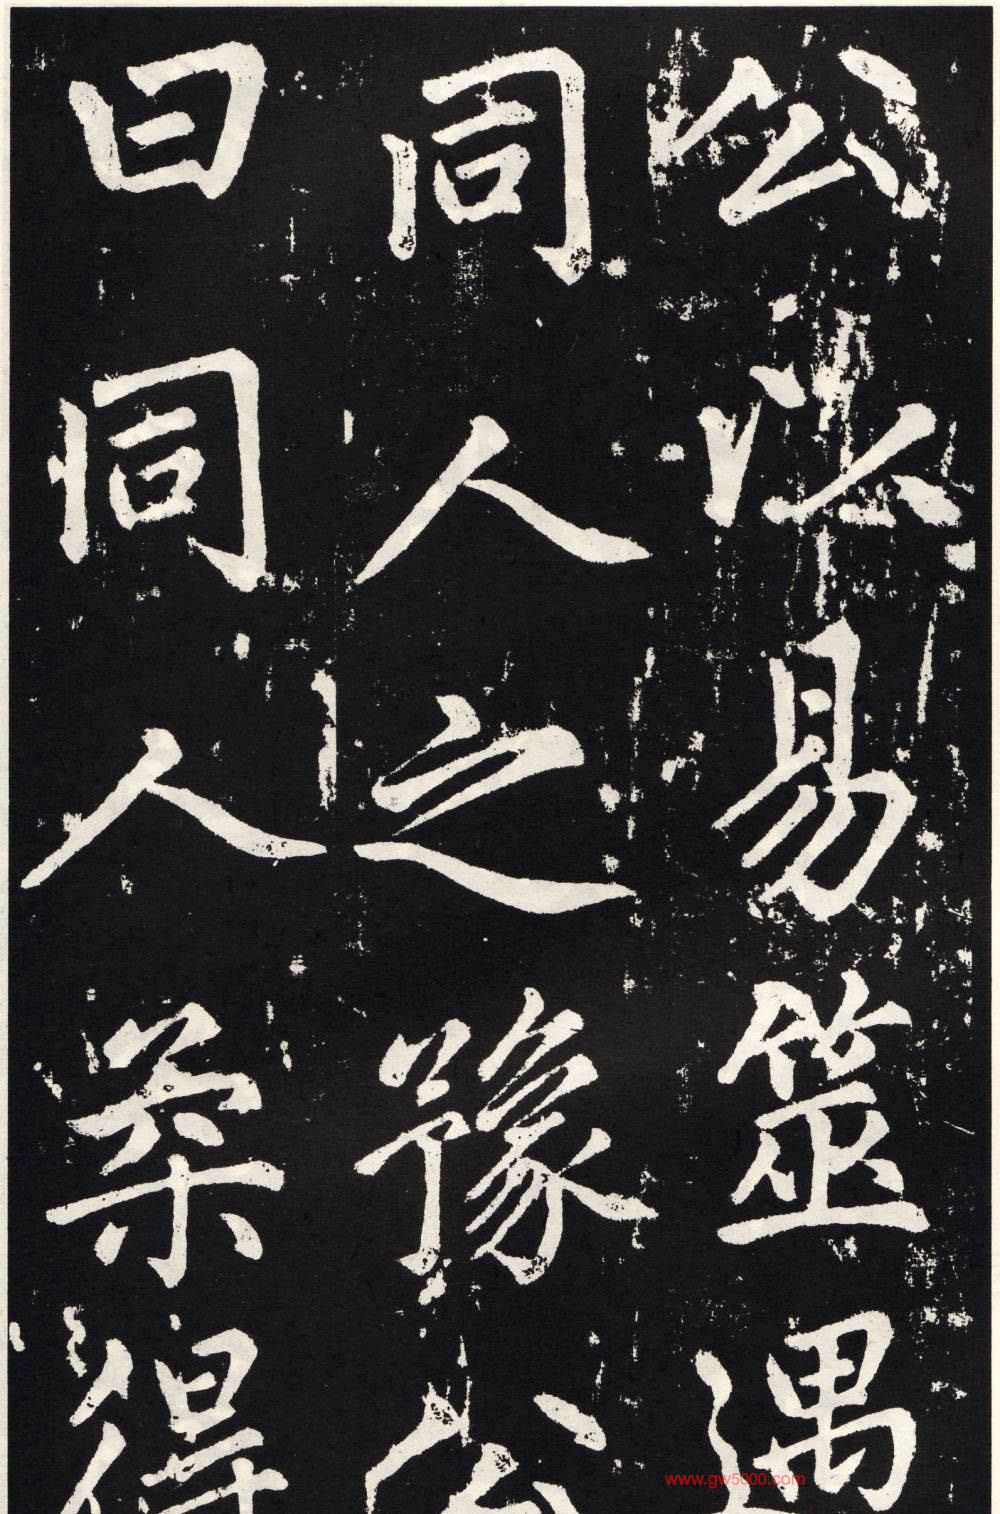 公以易筮遇
同人之豫公
曰同人柔得
www.gw5000.com